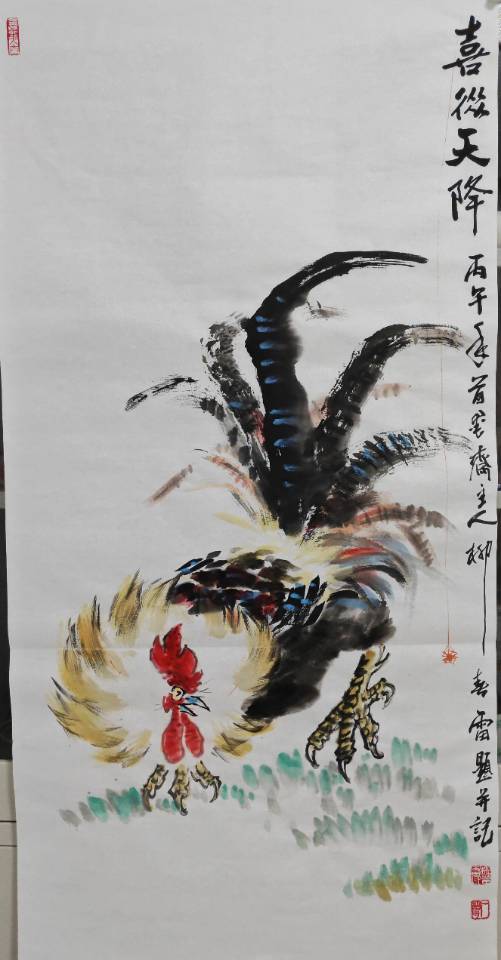 喜從天降
丙午年首墨齋主人柳春雷題並記